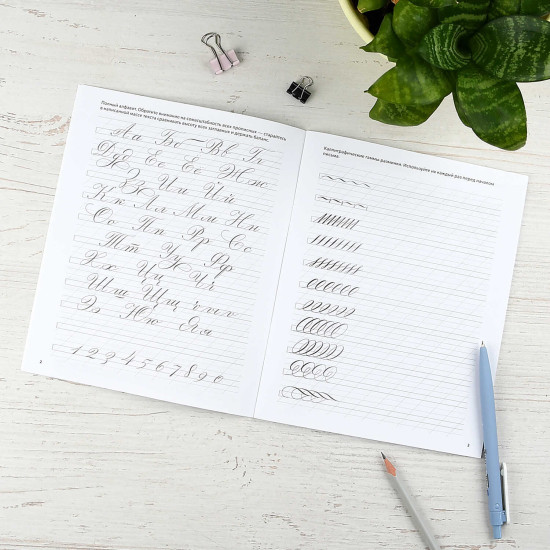 Полный алфавит. Обратите внимание на самостабильность всех прописных — старайтесь
в написанной массе текста сравнивать высоту всех заглавных и держать баланс.
Аа Бб Вв Гг
Дд Ее Ёё Жж
Зз Ии Йй
Кк Лл Мм Нн
Оо Пп Рр Сс
Тт Уу Фф
Хх Цц Чч
Шш Щщ ъ ы ь
Ээ Юю Яя
1 2 3 4 5 6 7 8 9 0
Каллиграфические гаммы разминки. Используйте их каждый раз перед началом
письма.